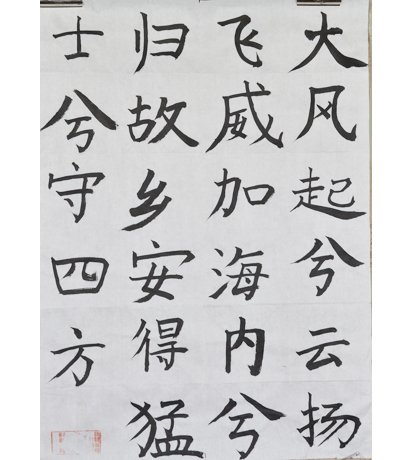 大风起兮云扬
飞威加海内兮
归故乡安得猛
士兮守四方